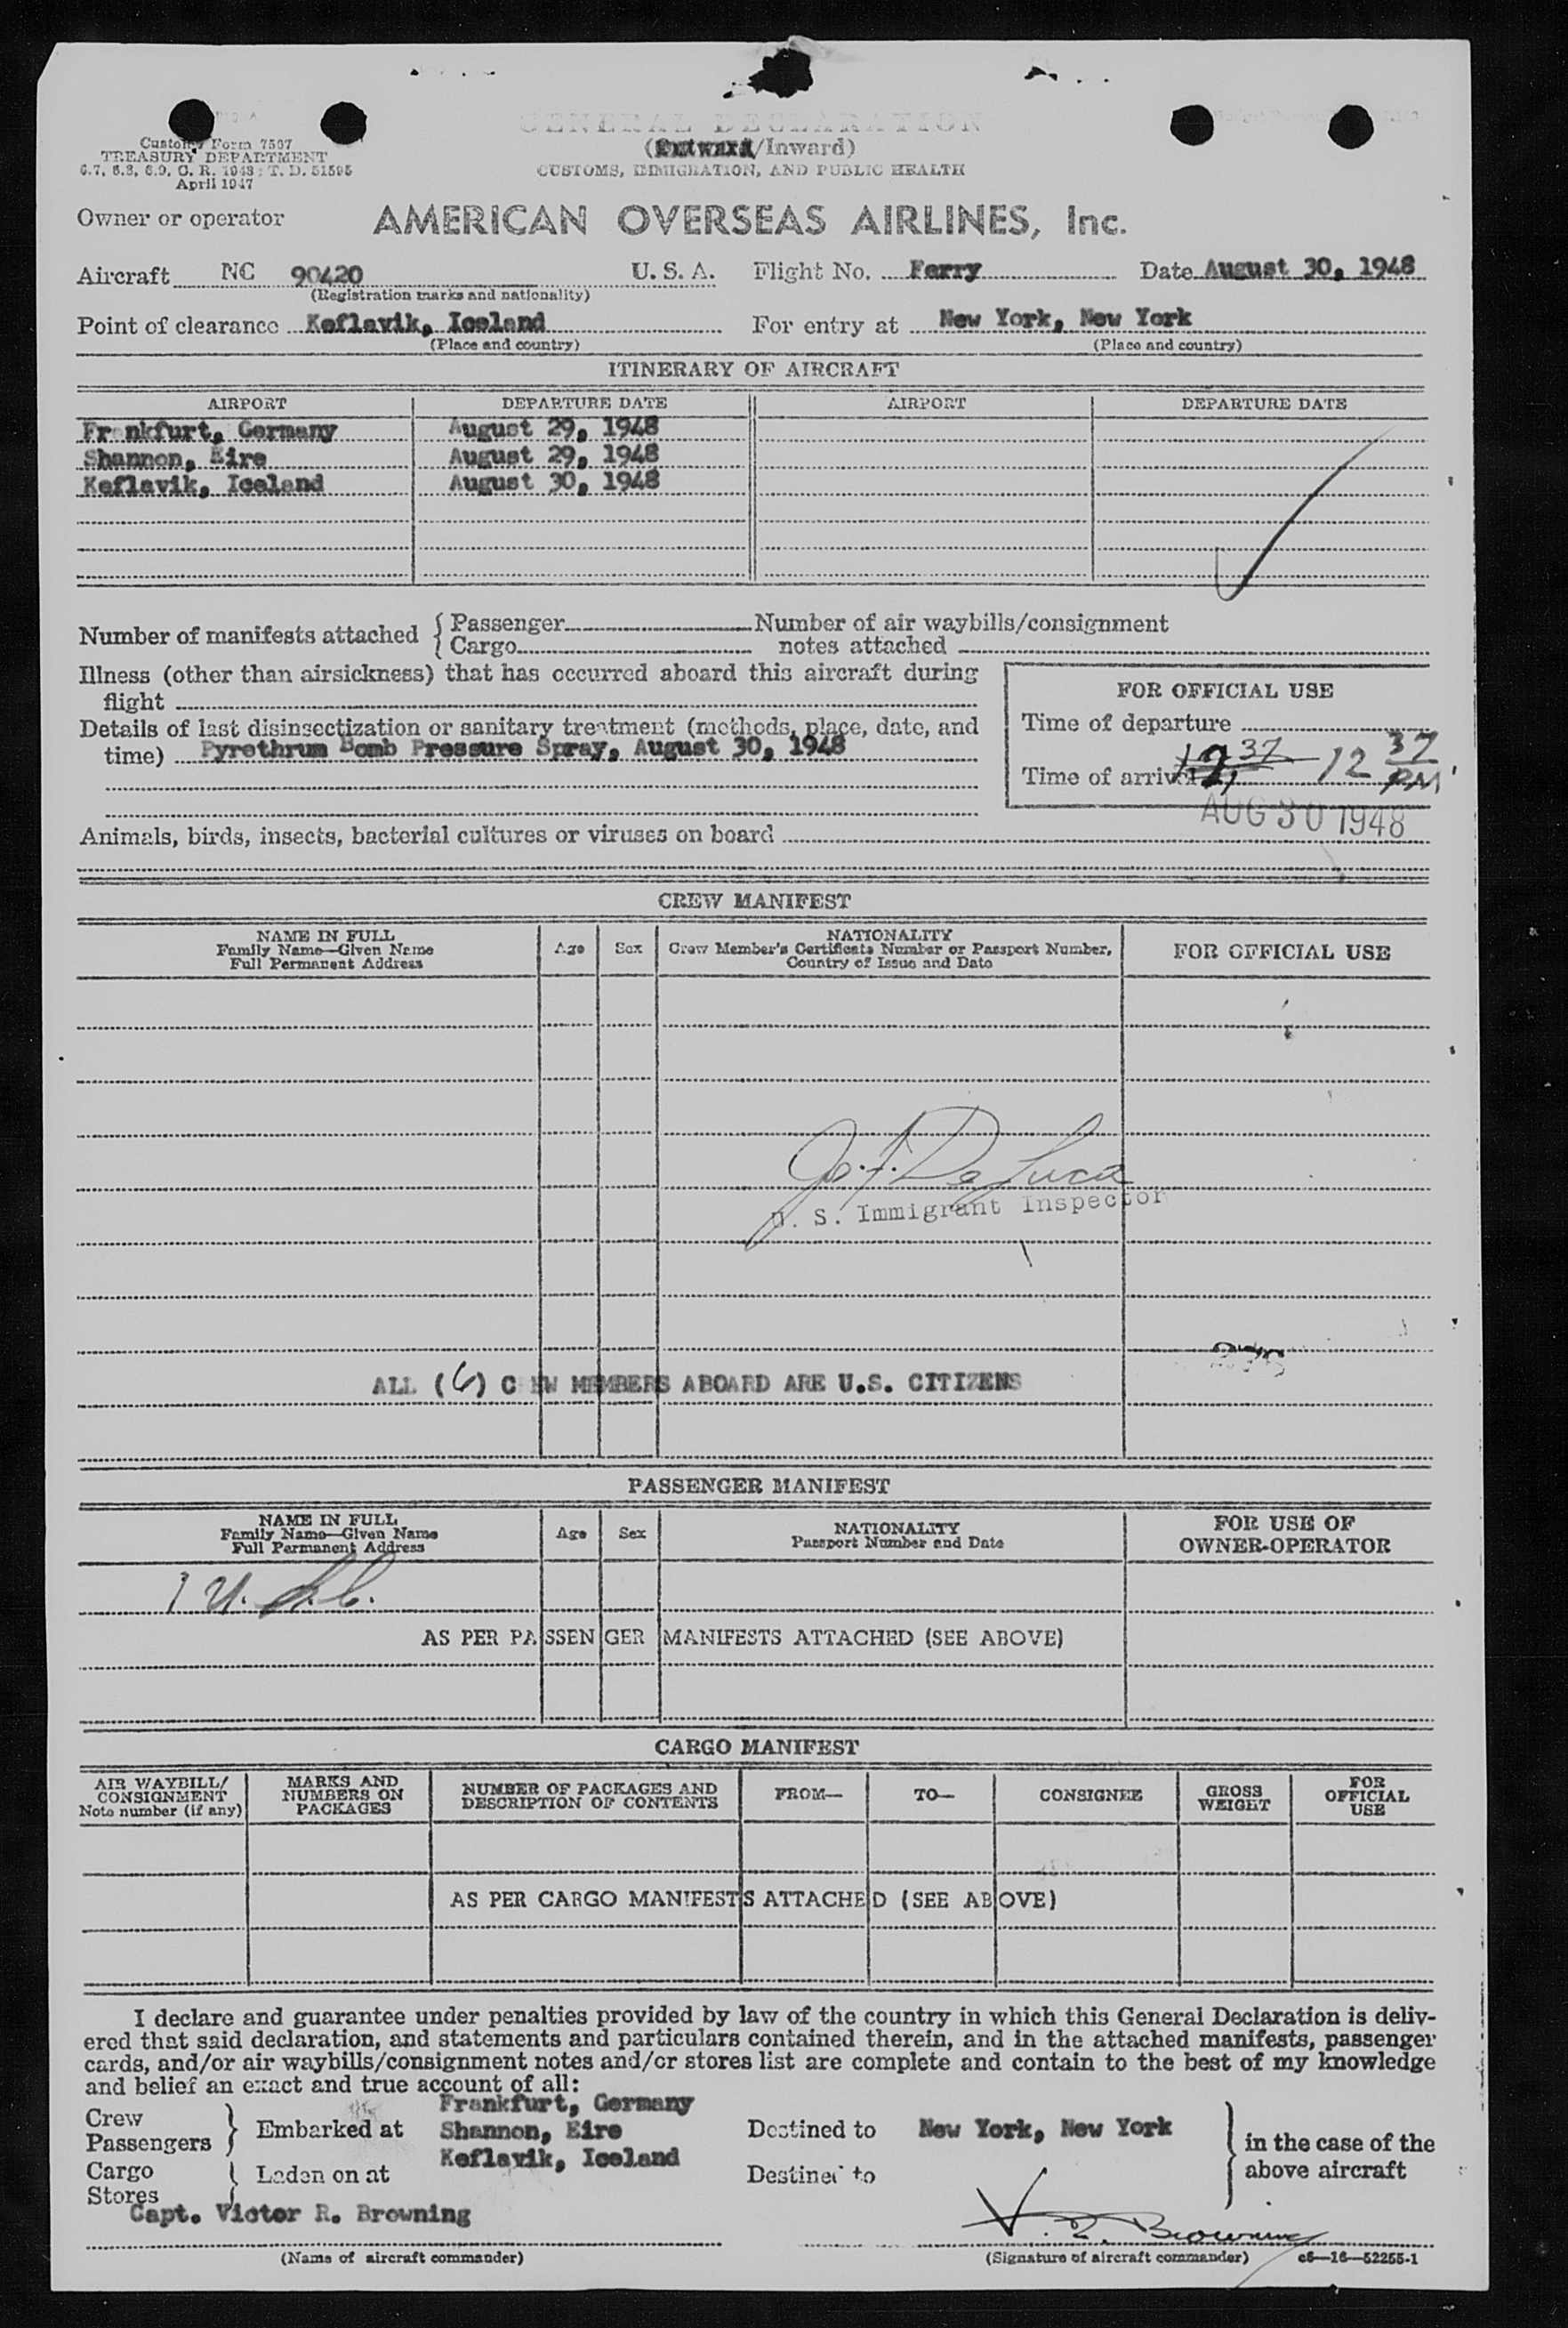 GENERAL DECLARATION
(Outward/Inward)
CUSTOMS, IMMIGRATION, AND PUBLIC HEALTH
Customs Form 7507
TREASURY DEPARTMENT
6.7, 6.8, 6.9, C. R. 1943; T. D. 51595
April 1947
Owner or operator AMERICAN OVERSEAS AIRLINES, Inc.
Aircraft NC 90420 U. S. A. Flight No. Ferry Date August 30, 1948
(Registration marks and nationality)
Point of clearance Keflavik, Iceland For entry at New York, New York
(Place and country) (Place and country)
ITINERARY OF AIRCRAFT
AIRPORT DEPARTURE DATE AIRPORT DEPARTURE DATE
Frankfurt, Germany August 29, 1948
Shannon, Eire August 29, 1948
Keflavik, Iceland August 30, 1948
Number of manifests attached { Passenger Number of air waybills/consignment
Cargo notes attached
Illness (other than airsickness) that has occurred aboard this aircraft during
flight
Details of last disinsectization or sanitary treatment (methods, place, date, and
time) Pyrethrum Bomb Pressure Spray, August 30, 1948
FOR OFFICIAL USE
Time of departure
Time of arrival 12 37 PM
AUG 30 1948
Animals, birds, insects, bacterial cultures or viruses on board
CREW MANIFEST
NAME IN FULL
Family Name—Given Name
Full Permanent Address
Age Sex
NATIONALITY
Crew Member's Certificate Number or Passport Number,
Country of Issue and Date
FOR OFFICIAL USE
U. S. Immigrant Inspector
ALL (6) CREW MEMBERS ABOARD ARE U.S. CITIZENS
PASSENGER MANIFEST
NAME IN FULL
Family Name—Given Name
Full Permanent Address
Age Sex
NATIONALITY
Passport Number and Date
FOR USE OF
OWNER-OPERATOR
AS PER PASSENGER MANIFESTS ATTACHED (SEE ABOVE)
CARGO MANIFEST
AIR WAYBILL/
CONSIGNMENT
Note number (if any)
MARKS AND
NUMBERS ON
PACKAGES
NUMBER OF PACKAGES AND
DESCRIPTION OF CONTENTS
FROM— TO— CONSIGNEE
GROSS
WEIGHT
FOR
OFFICIAL
USE
AS PER CARGO MANIFESTS ATTACHED (SEE ABOVE)
I declare and guarantee under penalties provided by law of the country in which this General Declaration is deliv-
ered that said declaration, and statements and particulars contained therein, and in the attached manifests, passenger
cards, and/or air waybills/consignment notes and/or stores list are complete and contain to the best of my knowledge
and belief an exact and true account of all:
Crew
Passengers } Embarked at
Frankfurt, Germany
Shannon, Eire
Keflavik, Iceland
Destined to New York, New York
Cargo
Stores } Laden on at
Destined to
in the case of the
above aircraft
Capt. Victor R. Browning
V. R. Browning
(Name of aircraft commander) (Signature of aircraft commander) c6—16—52255-1